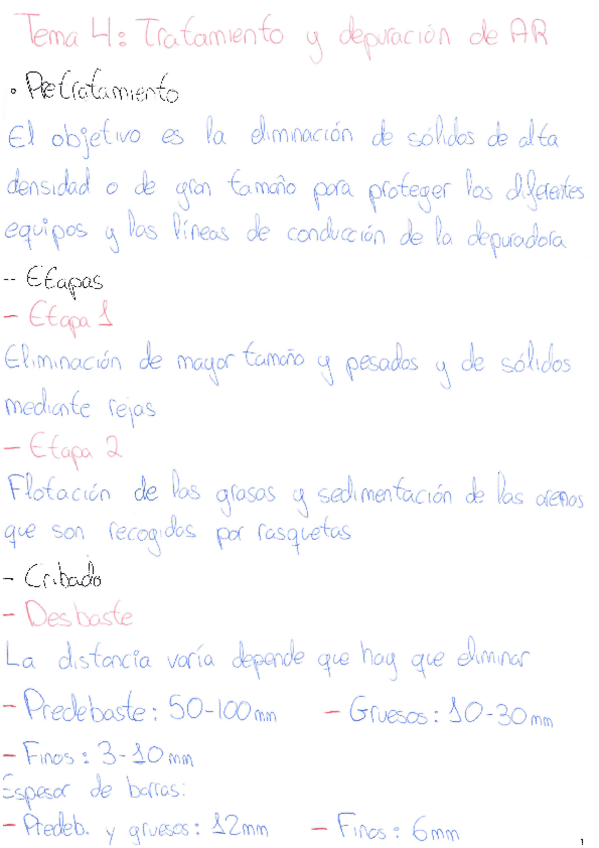 Tema 4: Tratamiento y depuración de AR
• Pretratamiento
El objetivo es la eliminación de sólidos de alta
densidad o de gran tamaño para proteger los diferentes
equipos y las líneas de conducción de la depuradora
-- Etapas
- Etapa 1
Eliminación de mayor tamaño y pesados y de sólidos
mediante rejas
- Etapa 2
Flotación de las grasas y sedimentación de las arenas
que son recogidas por rasquetas
- Cribado
- Desbaste
La distancia varía depende que hay que eliminar
- Predebaste: 50-100mm - Gruesos: 10-30mm
- Finos: 3-10mm
Espesor de barras:
- Predeb. y gruesos: 12mm - Finos: 6mm
1